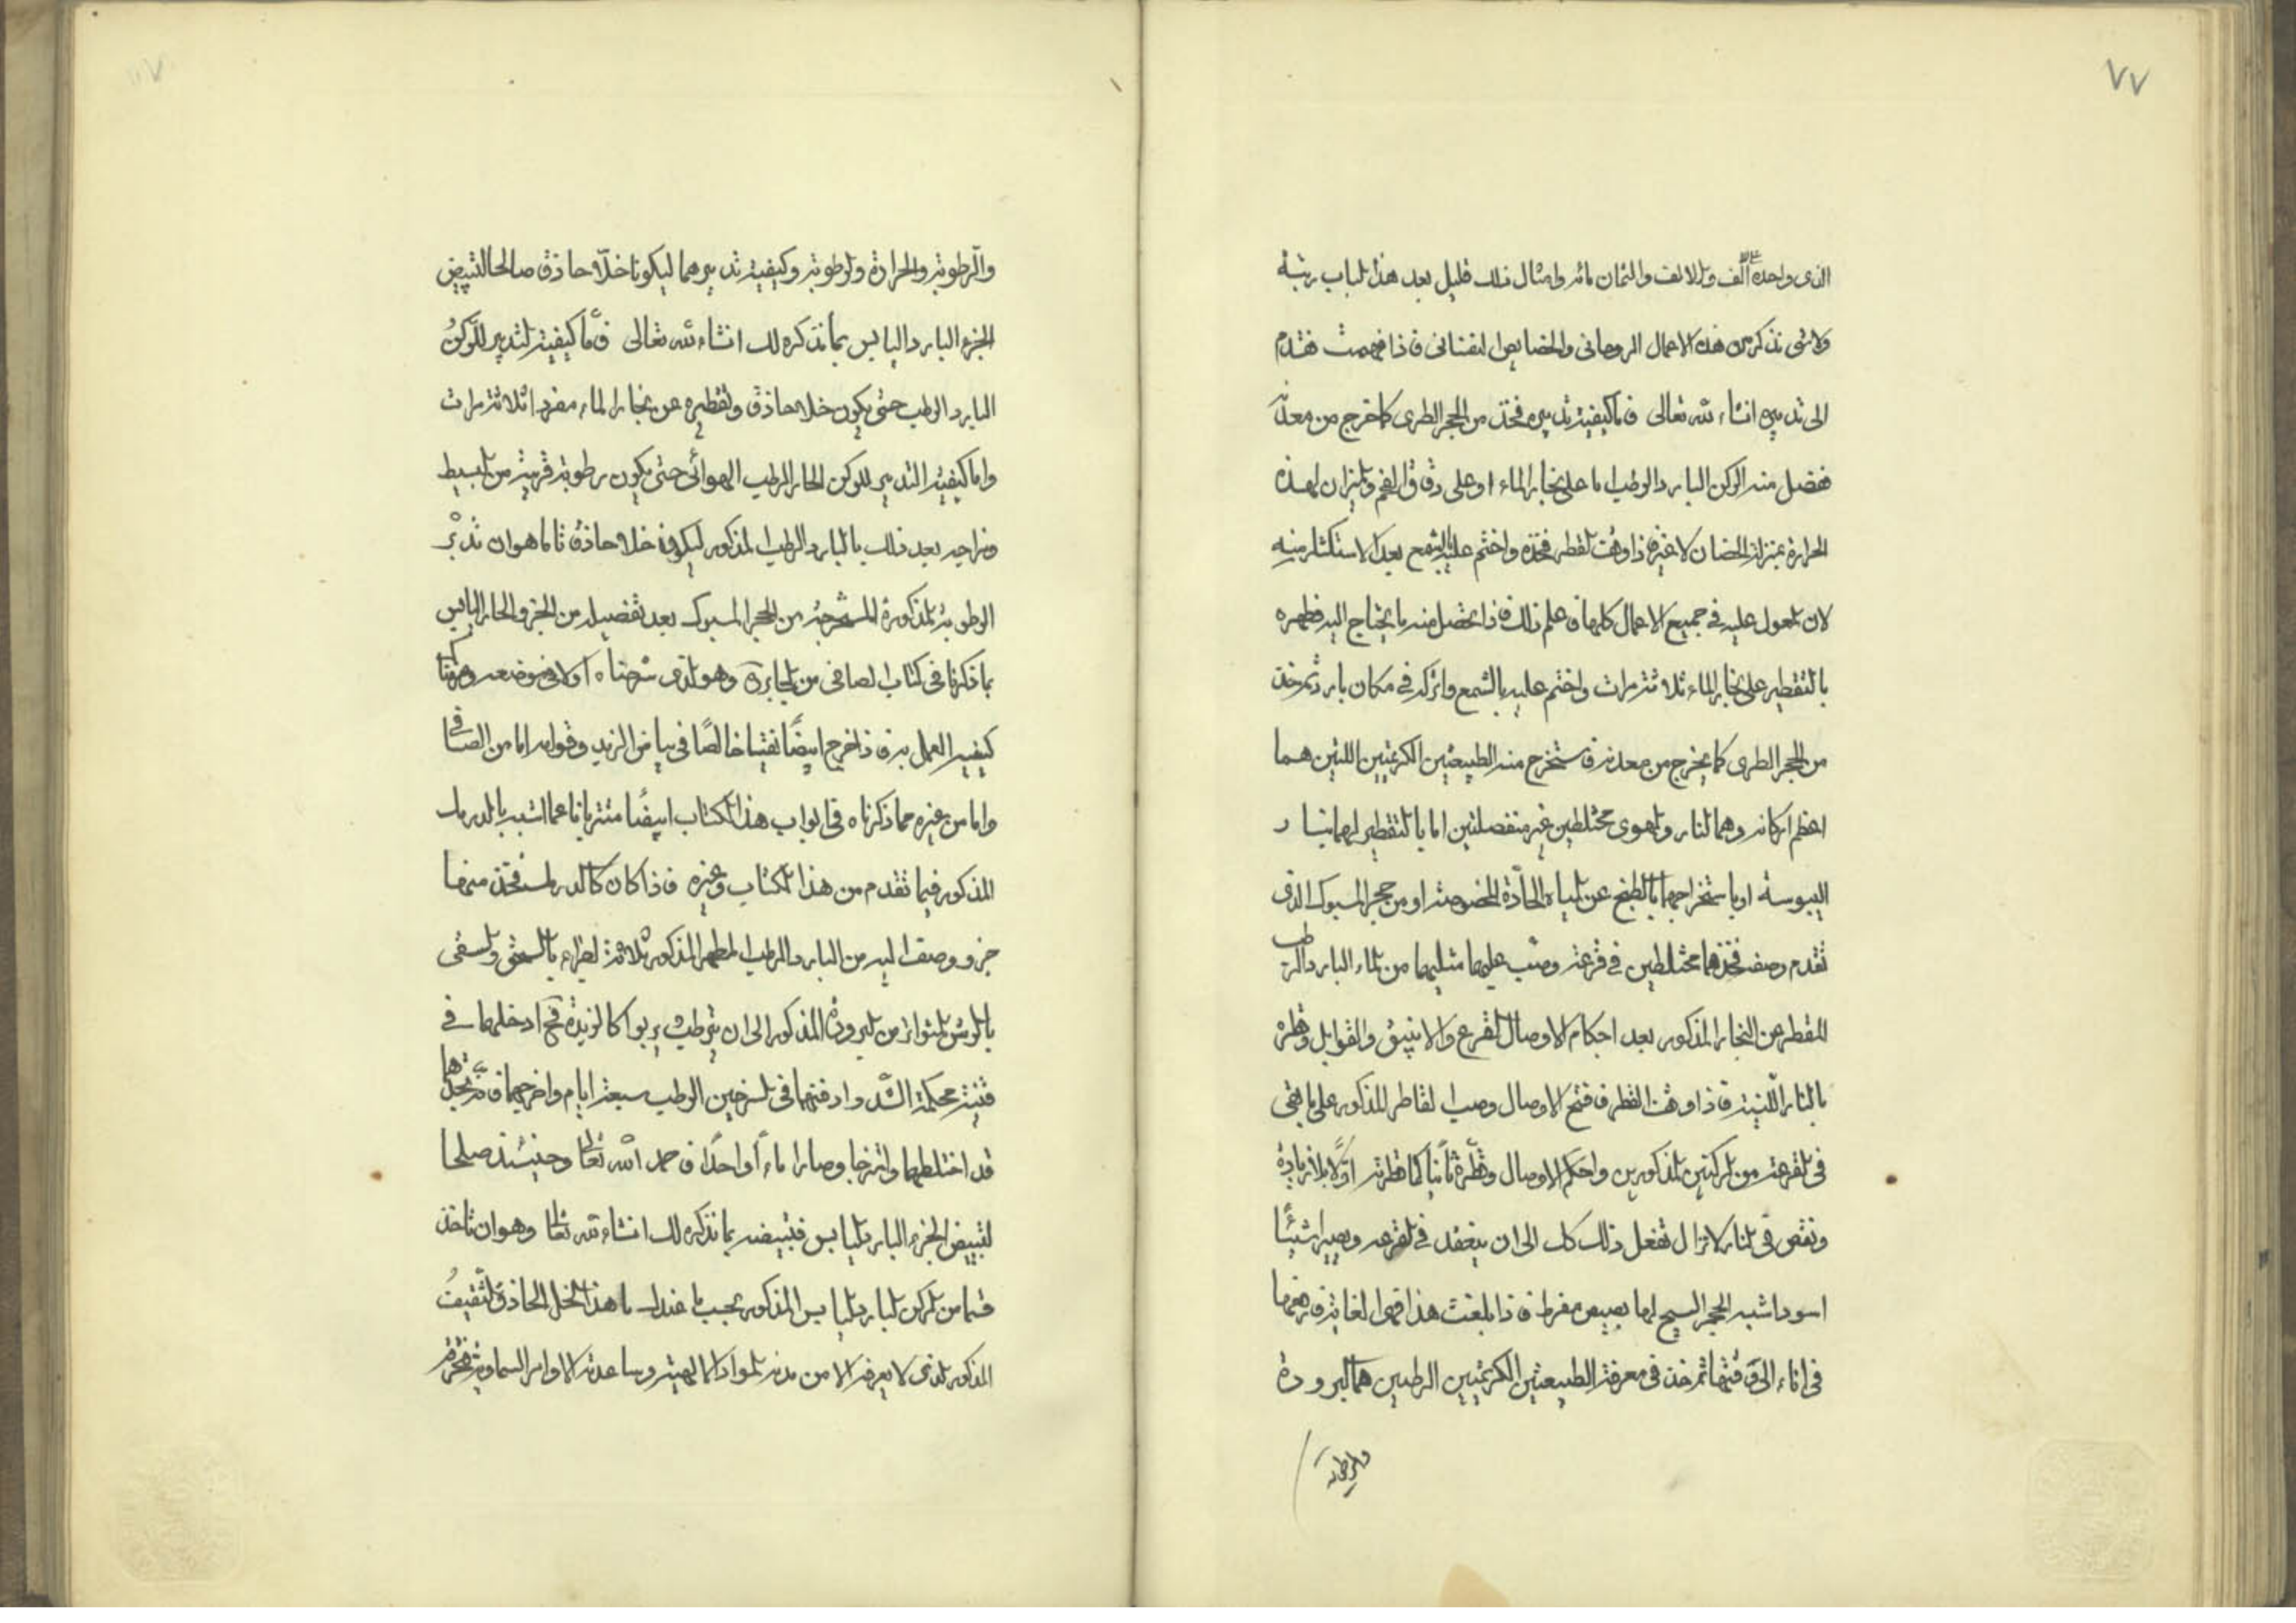 ٧٧
الذى واحده على الف والالف والثمان مائه وامثال ذلك قليل بعد هذا الباب رتبة
ولاشى نذكر من هذه الاعمال الروحانى والخصايص النفسانى فاذا فهمت فتقدم
الى تدبيره انشاء الله تعالى فاما كيفية تدبيره فخذ من الحجر الطرى كما خرج من معدنه
ففصل منه الركن البارد الرطب اما على بخار الماء او على دقاق الفحم والميزان لهذه
الحرارة بمنزلة الحضان لا غيره فاذا وقف القطر فخذه واختم عليه بالشمع بعد الاستكثار منه
لان المعول عليه فى جميع الاعمال كلها فاعلم ذلك فاذا تحصل منه ما يحتاج اليه فطهره
بالتقطير على بخار الماء ثلاثة مرات واختم عليه بالشمع واتركه فى مكان بارد ثم خذ
من الحجر الطرى كما يخرج من معدنه فاستخرج منه الطبيعتين الكريمتين اللتين هما
اعظم اركانه وهما النار والهوى مختلطين غير منفصلتين اما بالتقطير لهما بنار
اليبوسة او باستخراجهما بالطبخ عن المياه الحادة المخصوصة او من حجر المسبوك الذى
تقدم وصفه فخذهما مختلطين فى قرعة وصب عليهما مثليهما من الماء البارد الرطب
المقطر عن البخار المذكور بعد احكام الاوصال القرع والانبيق والقوابل وقطره
بالنار اللينة فاذا وقف القطر فافتح الاوصال وصب القاطر المذكور على ما بقى
فى القرعة من الركنين المذكورين واحكم الاوصال وقطره ثانيا كما قطرته اولا بلا زيادة
ونقص فى النار لا تزال تفعل ذلك كل الى ان ينعقد فى القرعه ويصير شيئا
اسود اشبه الحجر السبج لها بصيص مفرط فاذا بلغت هذا فهى الغاية فارفعها
فى اناء الى وقتها ثم خذ فى معرفة الطبيعتين الكريمتين الرطبين هما البرودة
والرطوبة
والرطوبة والحرارة والرطوبة وكيفية تدبيرهما ليكونا خلا حاذق صالحا لتبييض
الجزء البارد اليابس بما نذكره لك انشاء الله تعالى فاما كيفية التدبير للركن
البارد الرطب حتى يكون خلا حاذق وتقطيره عن بخار الماء مفردا ثلاثة مرات
واما كيفية التدبير للركن الحار الرطب الهوائى حتى يكون رطوبة قريبة من البسيط
ومزاجه بعد ذلك بالبارد الرطب المذكور ليكونا خلا حاذق فاما هو ان تدبر
الرطوبة المذكورة المستخرجة من الحجر المسبوك بعد تفضيله من الجزو الحار اليابس
بما ذكرنا فى كتاب الصافى من الجابرى وهو الذى شرحناه اولا فى موضعه
كيفية العمل به فاذا خرج ابيضا نقيا خالصا فى بياض الزبد وقوامه اما من الصافى
واما من غيره مما ذكرناه فى ابواب هذا الكتاب ايضا ناعما اشبه بالدرمك
المذكور فيما تقدم من هذا الكتاب وغيره فاذا كان كالدرمك فخذ منها
جزو وصف اليه من البارد الرطب المطهر المذكور ثلاثة اجزاء بالسحق والسقى
بالرش المتواتر من البرودة المذكور الى ان يترطب يربوا كالزبدة فح ادخلهما فى
قنينة محكمة الشد وادفنهما فى السرجين الرطب سبعة ايام واخرجهما فانه تجدهما
قد اختلطهما وامتزجا وصارا ماء واحدا فاحمد الله تعالى وحينئذ صلحا
لتبييض الجزء البارد اليابس فتبيضه بما نذكره لك انشاء الله تعالى وهو ان تاخذ
قسما من الركن البارد اليابس المذكور بحسب ما عندك ما هذا الخل الحاذق الثقيف
المذكور الذى لا يعرفه الا من مدته المواد الالهية وساعدته الاوامر السماوية